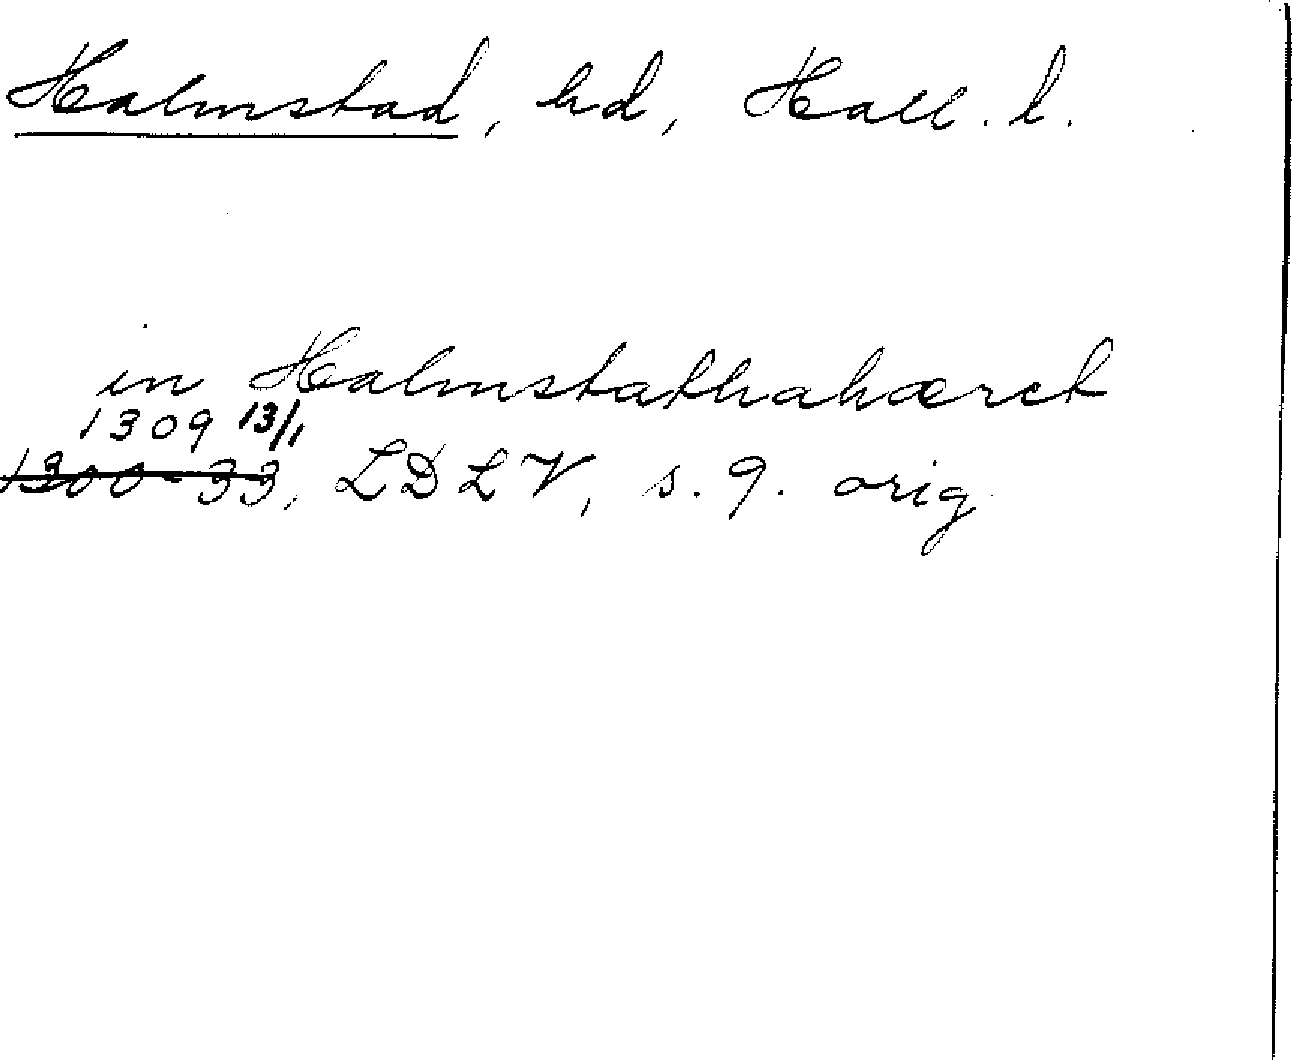 Halmstad, hd, Hall. l.
in Halmstathahæret
1309 13/1
1300-33, LDLV, s. 9. orig